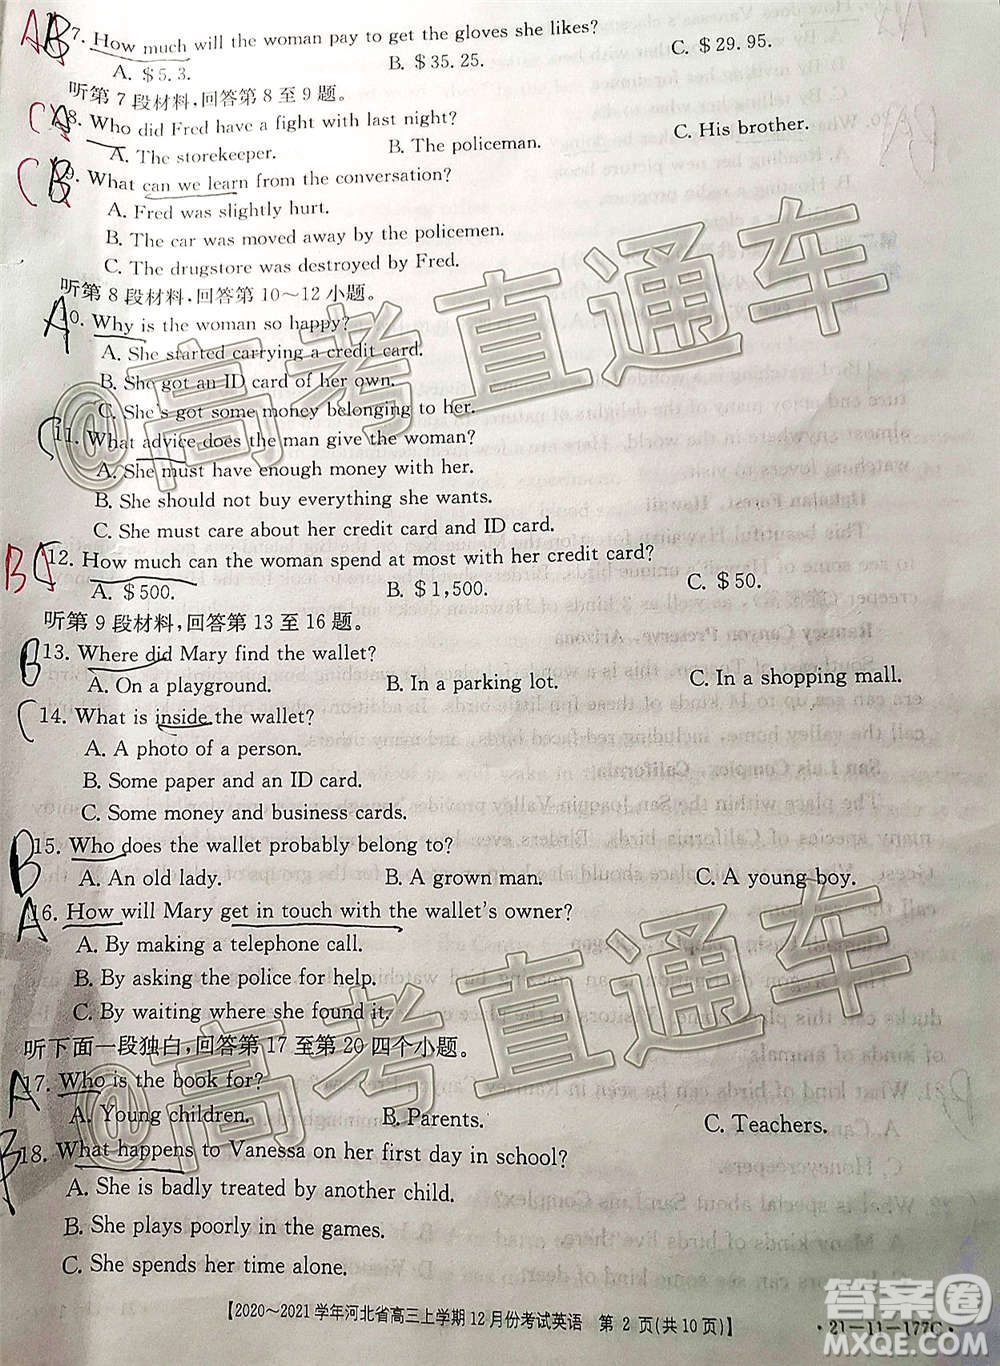 7. How much will the woman pay to get the gloves she likes?
A. $5.3. B. $35.25. C. $29.95.
听第7段材料,回答第8至9题。
8. Who did Fred have a fight with last night?
A. The storekeeper. B. The policeman. C. His brother.
9. What can we learn from the conversation?
A. Fred was slightly hurt.
B. The car was moved away by the policemen.
C. The drugstore was destroyed by Fred.
听第8段材料,回答第10~12小题。
10. Why is the woman so happy?
A. She started carrying a credit card.
B. She got an ID card of her own.
C. She's got some money belonging to her.
11. What advice does the man give the woman?
A. She must have enough money with her.
B. She should not buy everything she wants.
C. She must care about her credit card and ID card.
12. How much can the woman spend at most with her credit card?
A. $500. B. $1,500. C. $50.
听第9段材料,回答第13至16题。
13. Where did Mary find the wallet?
A. On a playground. B. In a parking lot. C. In a shopping mall.
14. What is inside the wallet?
A. A photo of a person.
B. Some paper and an ID card.
C. Some money and business cards.
15. Who does the wallet probably belong to?
A. An old lady. B. A grown man. C. A young boy.
16. How will Mary get in touch with the wallet's owner?
A. By making a telephone call.
B. By asking the police for help.
C. By waiting where she found it.
听下面一段独白,回答第17至第20四个小题。
17. Who is the book for?
A. Young children. B. Parents. C. Teachers.
18. What happens to Vanessa on her first day in school?
A. She is badly treated by another child.
B. She plays poorly in the games.
C. She spends her time alone.
【2020~2021学年河北省高三上学期12月份考试英语 第2页(共10页)】 ·21-11-177C·
@高考直通车
@高考直通车
答案圈
MXQE.COM